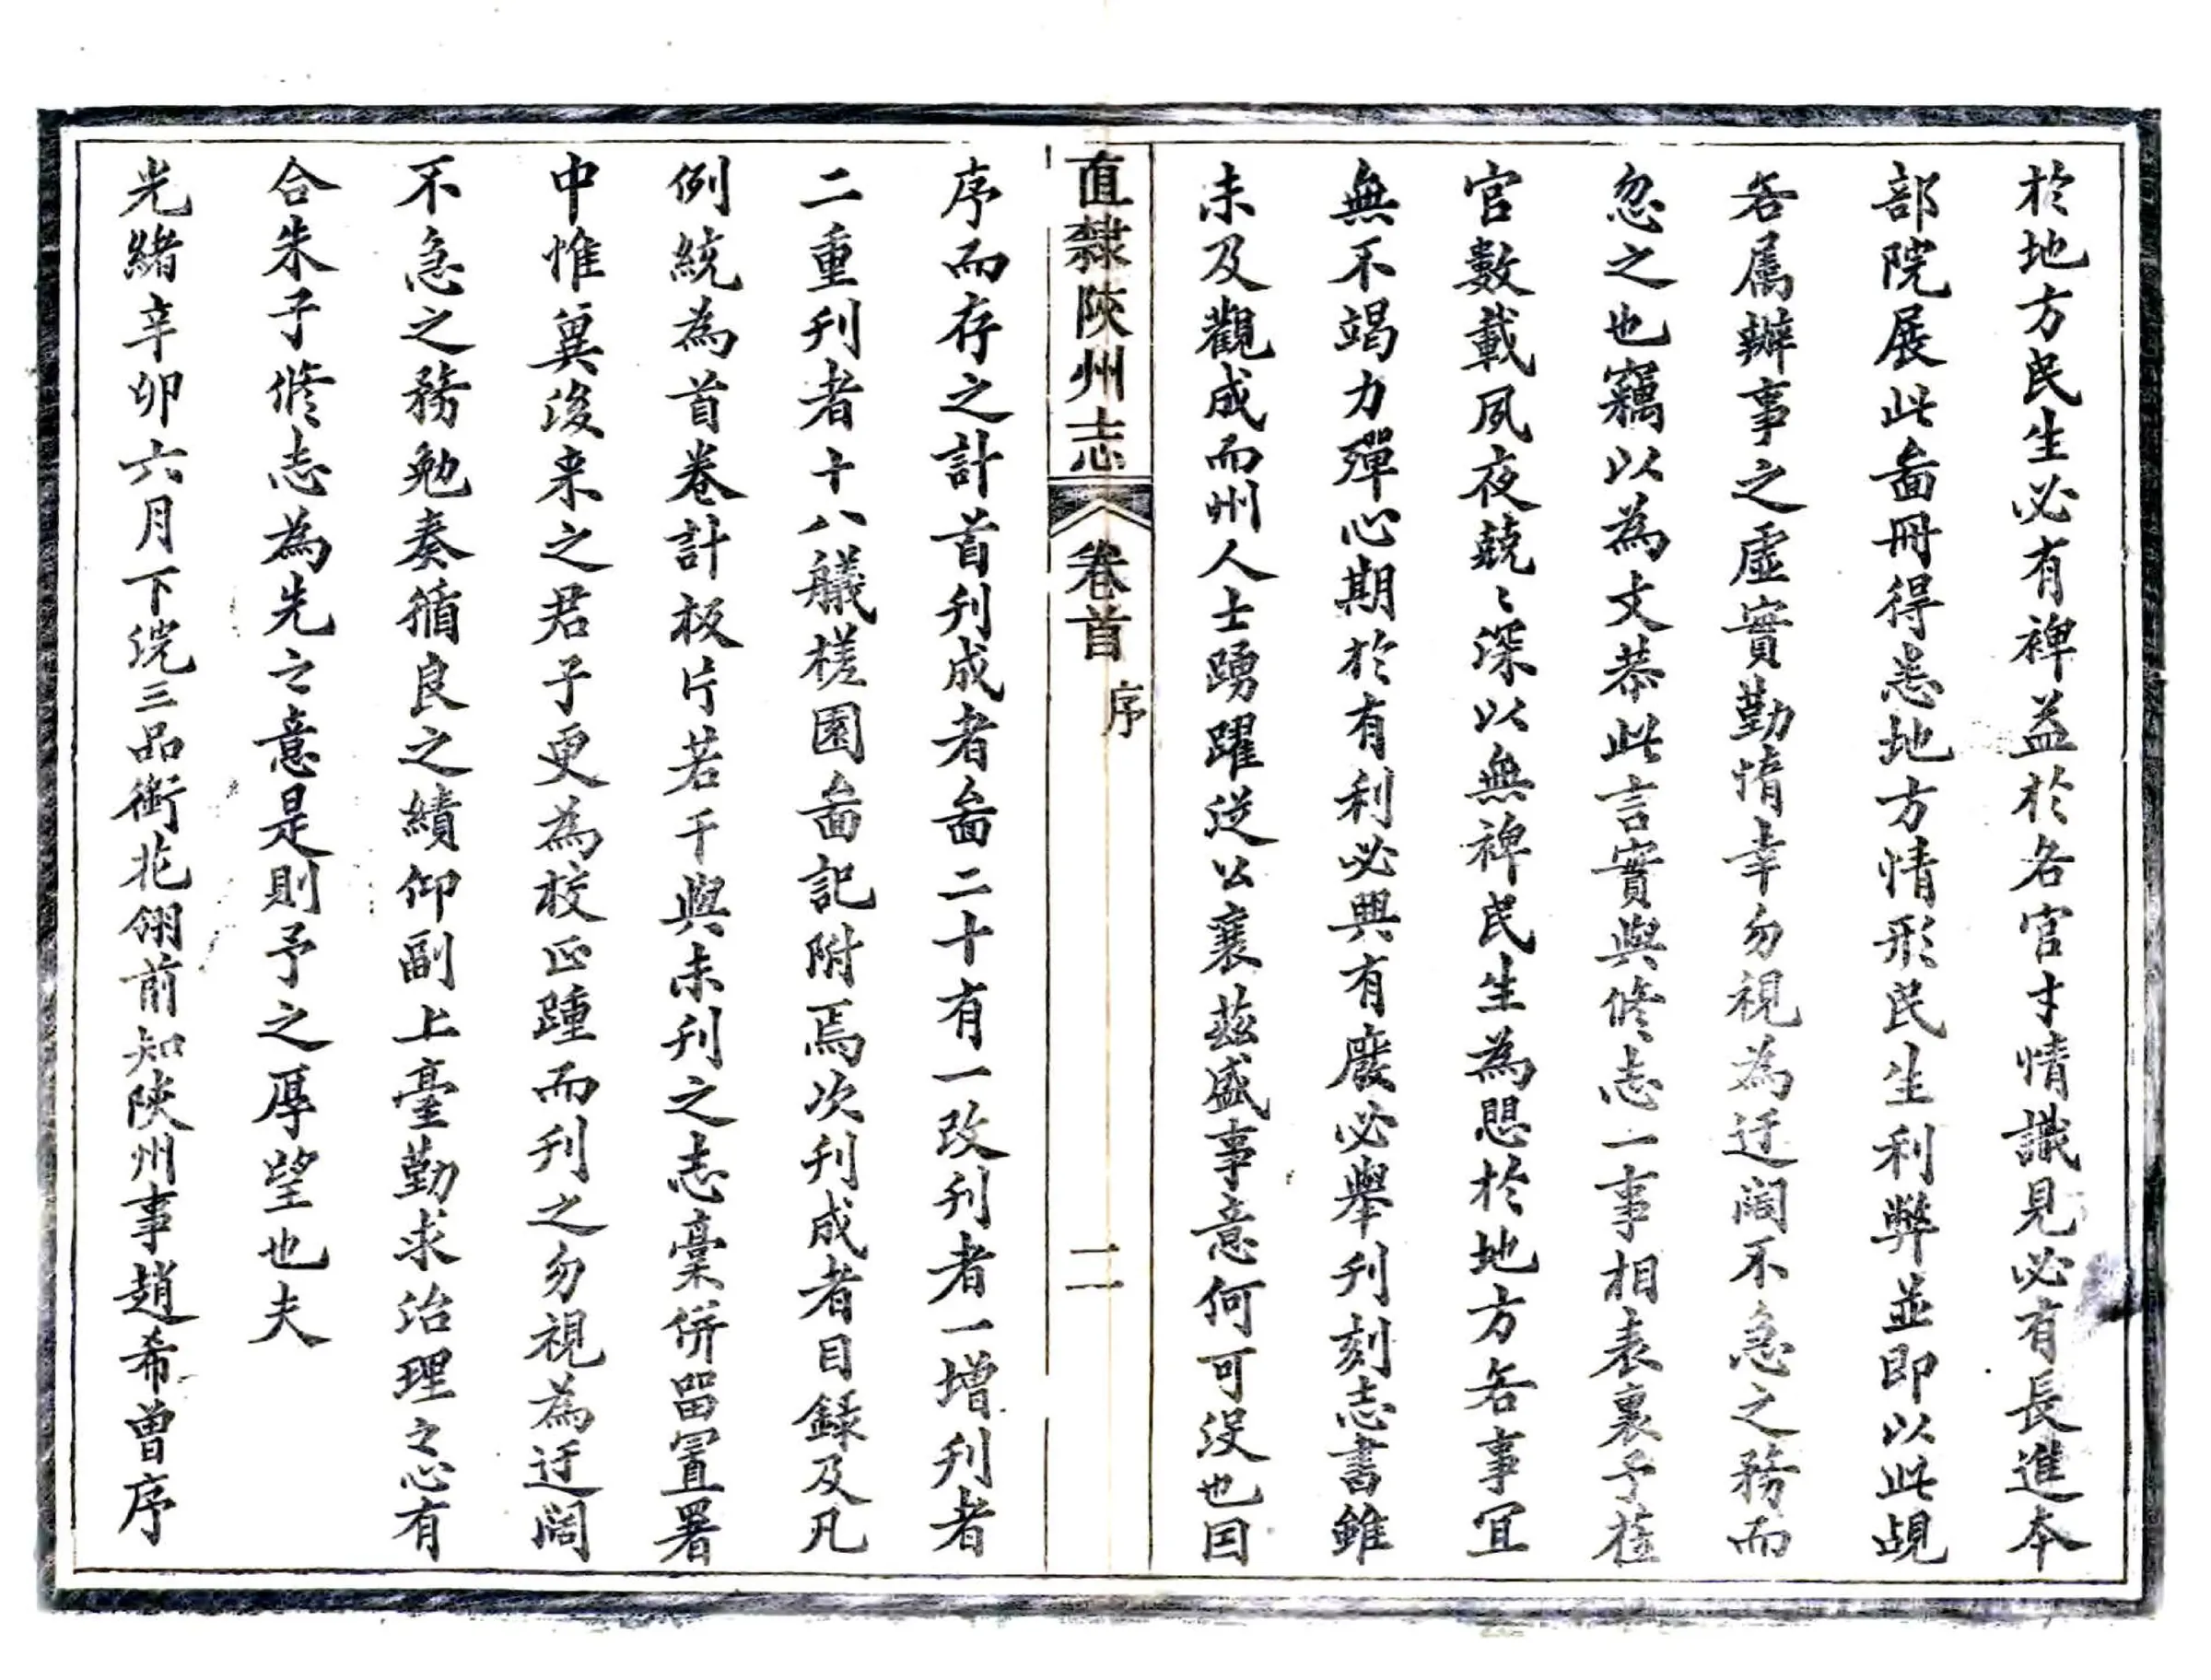 於地方民生必有裨益於各官才情識見必有長進本
部院展此啚冊得悉地方情形民生利弊並即以此覘
各屬辦事之虛實勤惰幸勿視為迂闊不急之務而
忽之也竊以為文恭此言實與修志一事相表裏予蒞
官數載夙夜兢〻深以無裨民生為愳於地方各事宜
無不竭力殫心期於有利必興有廢必舉刋刻志書雖
未及觀成而州人士踴躍從公襄茲盛事意何可沒也因
直隸陝州志
卷首
序
二
序而存之計首刋成者啚二十有一改刋者一增刋者
二重刋者十八艤槎園啚記附焉次刋成者目録及凡
例統為首卷計板片若干與未刋之志藁併畱置署
中惟冀後来之君子更為校正踵而刋之勿視為迂闊
不急之務勉奏循良之績仰副上臺勤求治理之心有
合朱子修志為先之意是則予之厚望也夫
光緒辛卯六月下浣三品銜花翎前知陝州事趙希曾序